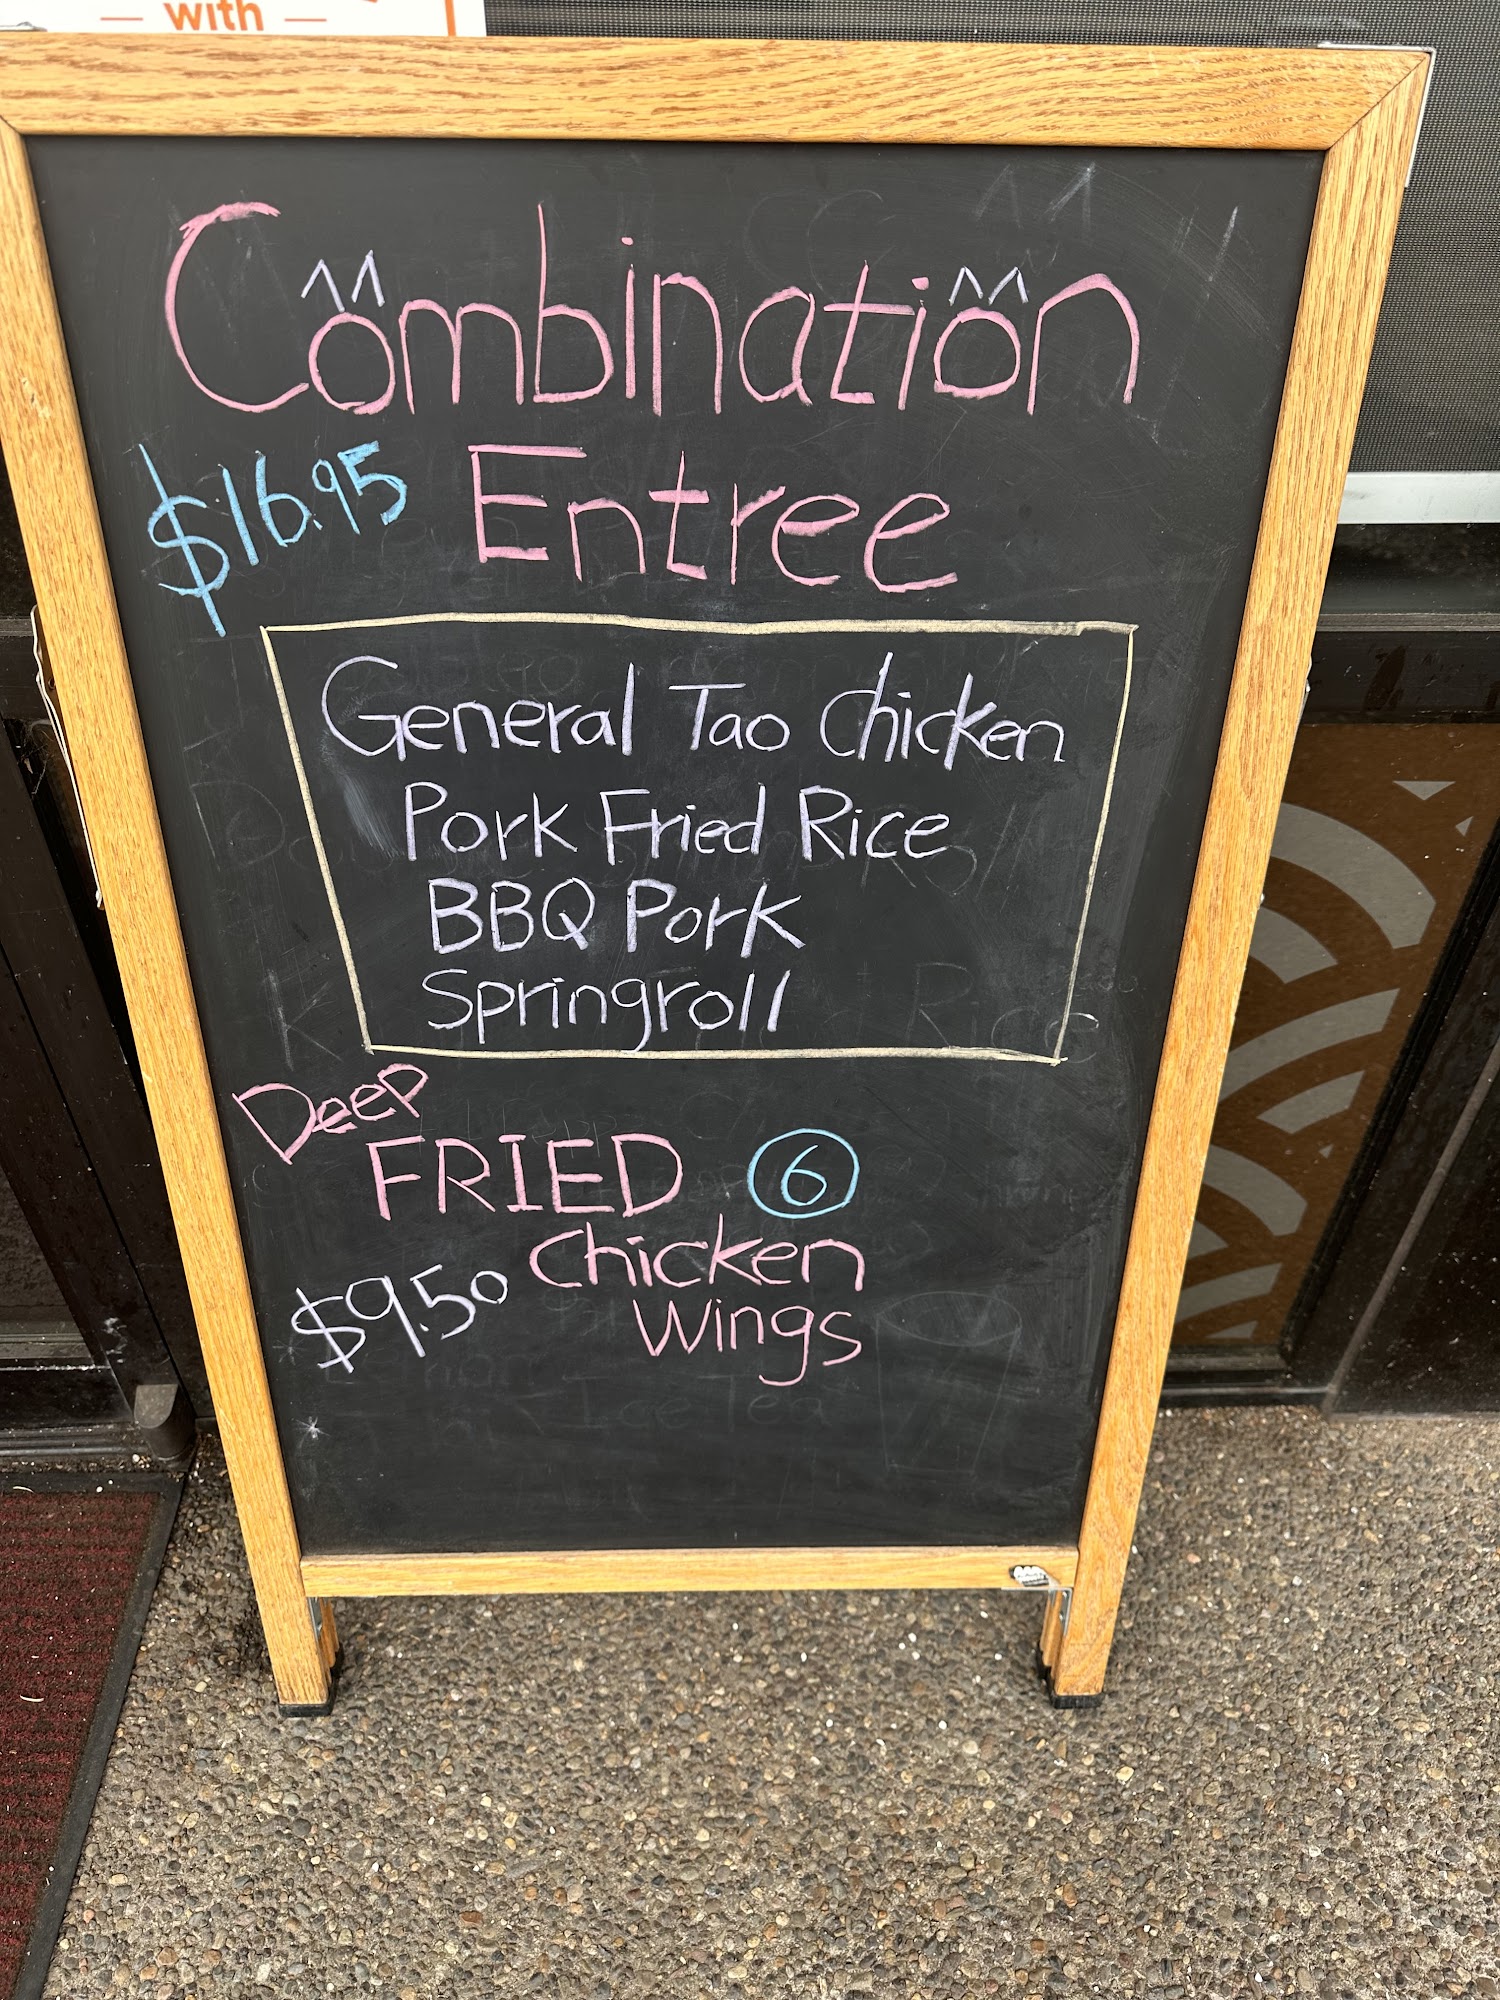 — with —
Combination
$16.95 Entree
General Tao Chicken
Pork Fried Rice
BBQ Pork
Springroll
Deep
FRIED 6
Chicken
$9.50 Wings
Rice
Ice Tea